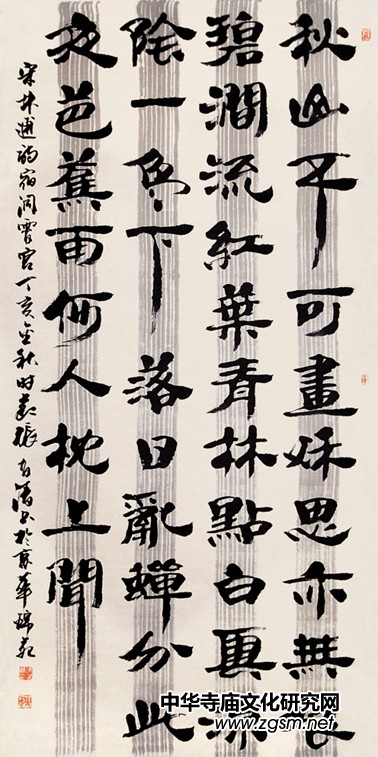 秋山不可畫秋思亦無垠
碧澗流紅葉青林點白雲涼
陰一鳥下落日亂蟬分此
夜芭蕉雨何人枕上聞
宋林逋詩宿洞霄宮丁亥金秋時張有清書於京華
中华寺庙文化研究网
www.zgsm.net